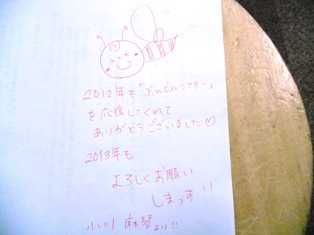 2012年も「ぶんぶんシアター」
を応援してくれて
ありがとうございました♡
2013年も
よろしくお願い
しまっす!!
小川 麻琴より!!